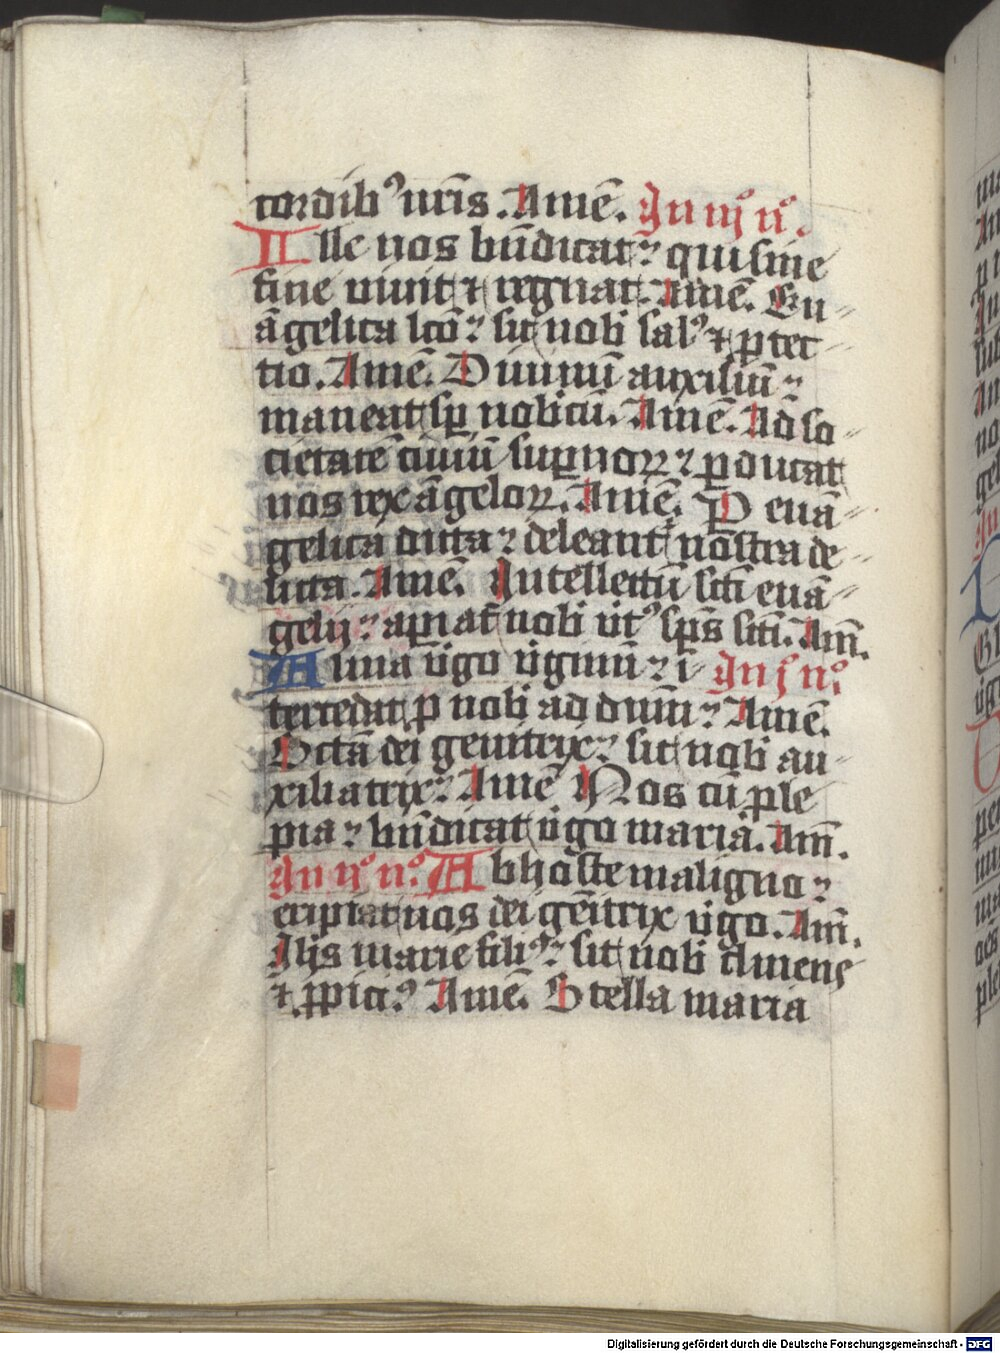 cordib⁹ nr̄is. Amē. In iij⁰ n⁰.
Ille nos bn̄dicat ⁊ qui sine
fine viuit ⁊ regnat. Amē. Eu-
ā gelica lcō ⁊ sit nobˀ salꝰ ⁊ ꝓtec-
tio. Amē. Diuinū auxiliū ⁊
maneat sꝑ nobˀcū. Amē. Ad so-
cietatē ciuiū suꝑnoꝝ ⁊ ꝑducat
nos rex āgeloꝝ. Amē. P euā-
gelica dicta ⁊ deleant nostra de-
licta. Amē. Intellectū scī euā-
gelij ⁊ apiat nobˀ vtˀ sp̄s scī. Am̄.
Alma v̄go v̄ginū ⁊ i- In j n⁰
tercedat ꝑ nobˀ ad dūm ⁊ Amē.
Sctā dei genitrix ⁊ sit nobˀ au-
xiliatrix ⁊ Amē Nos cū ꝓle
pia ⁊ bn̄dicat v̄go maria. Am̄.
In ij⁰ n⁰. Ab hoste maligno ⁊
eripiat nos dei gēitrix v̄go. Am̄.
Alis marie filiꝰ ⁊ sit nobˀ clmens
⁊ ꝓpiciꝰ Amē. Stella maria
Digitalisierung gefördert durch die Deutsche Forschungsgemeinschaft - DFG